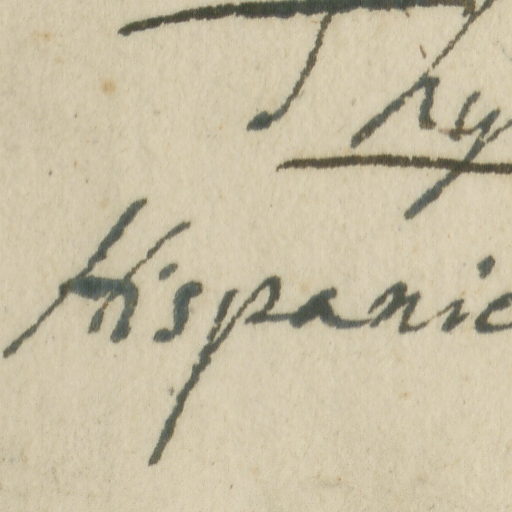 Thy
Hispanic